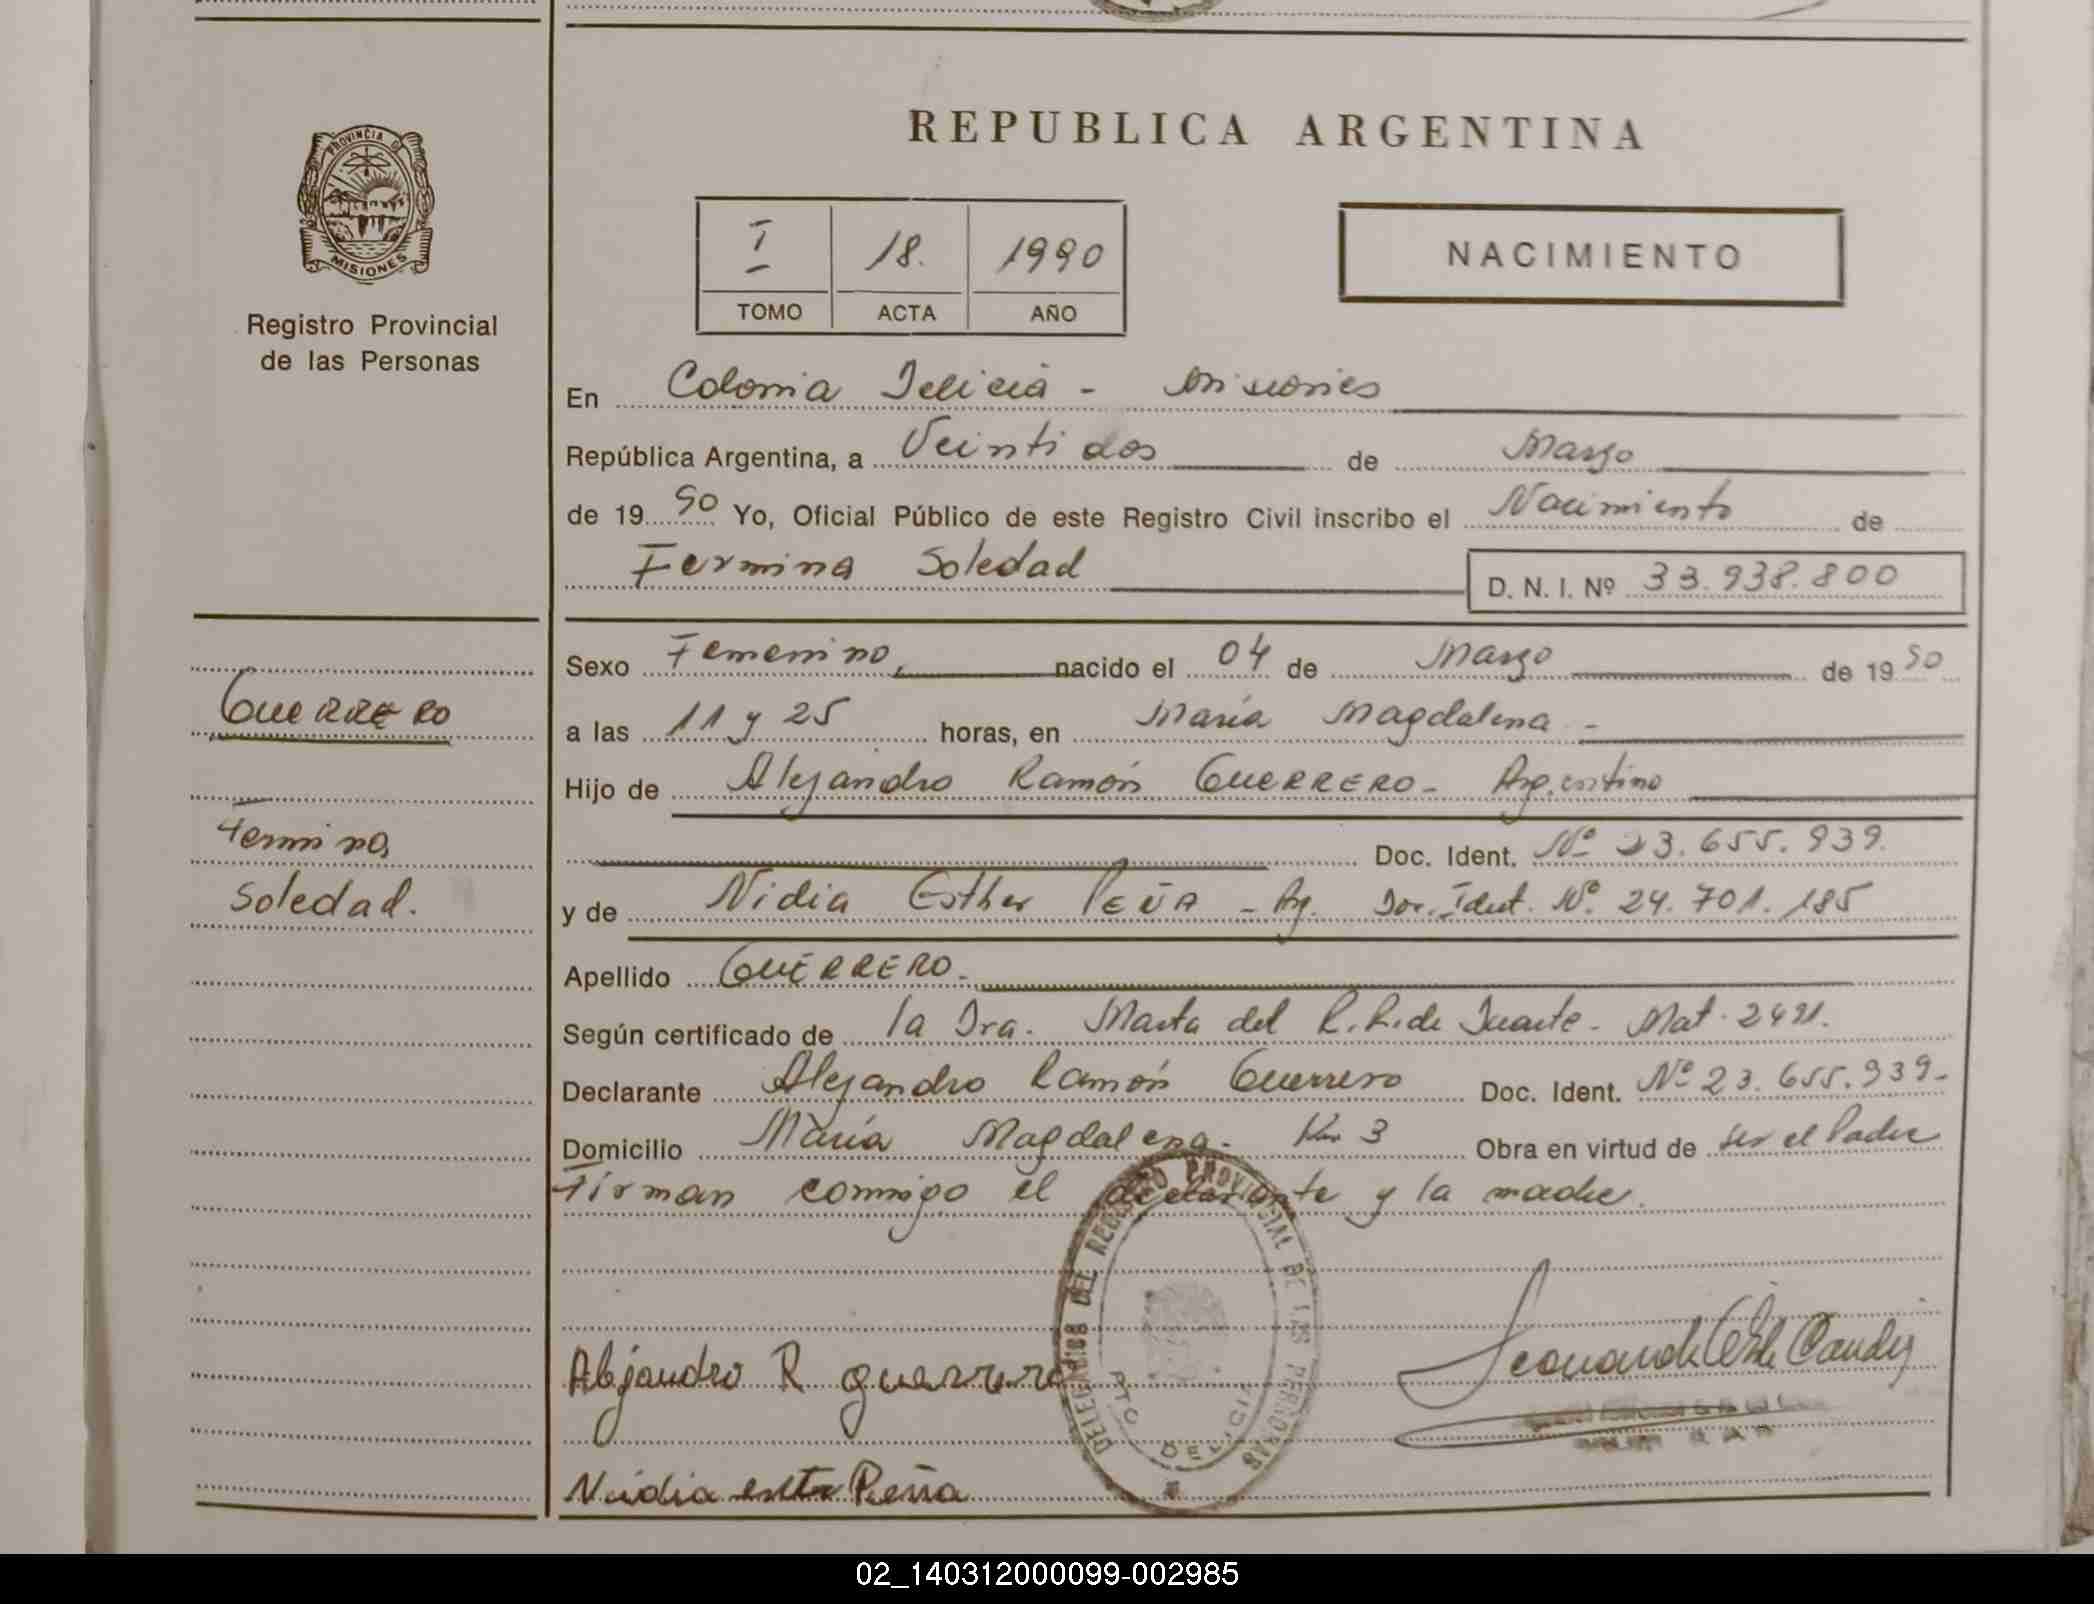 REPUBLICA ARGENTINA
PROVINCIA DE
MISIONES
Registro Provincial
de las Personas
I 18. 1990
TOMO ACTA AÑO
NACIMIENTO
En Colonia Delicia - Misiones
República Argentina, a Veintidos de Marzo
de 19 90 Yo, Oficial Público de este Registro Civil inscribo el Nacimiento de
Fermina Soledad D. N. I. Nº 33.938.800
Sexo Femenino, nacido el 04 de Marzo de 19 90
GUERRERO
a las 11 y 25 horas, en María Magdalena -
Hijo de Alejandro Ramón GUERRERO - Argentino
Fermina
Doc. Ident. Nº 23.655.939.
Soledad.
y de Nidia Esther PEÑA - Arg. Doc. Ident. Nº 24.701.185
Apellido GUERRERO.
Según certificado de la Dra. Marta del R. R. de Duarte - Mat. 2491.
Declarante Alejandro Ramón Guerrero Doc. Ident. Nº 23.655.939-
Domicilio María Magdalena - Km 3 Obra en virtud de ser el Padre
Firman conmigo el declarante y la madre.
DELEGACION DEL REGISTRO PROVINCIAL DE LAS PERSONAS
PTO DELICIA
Alejandro R guerrero
Nidia esther Peña
02_140312000099-002985